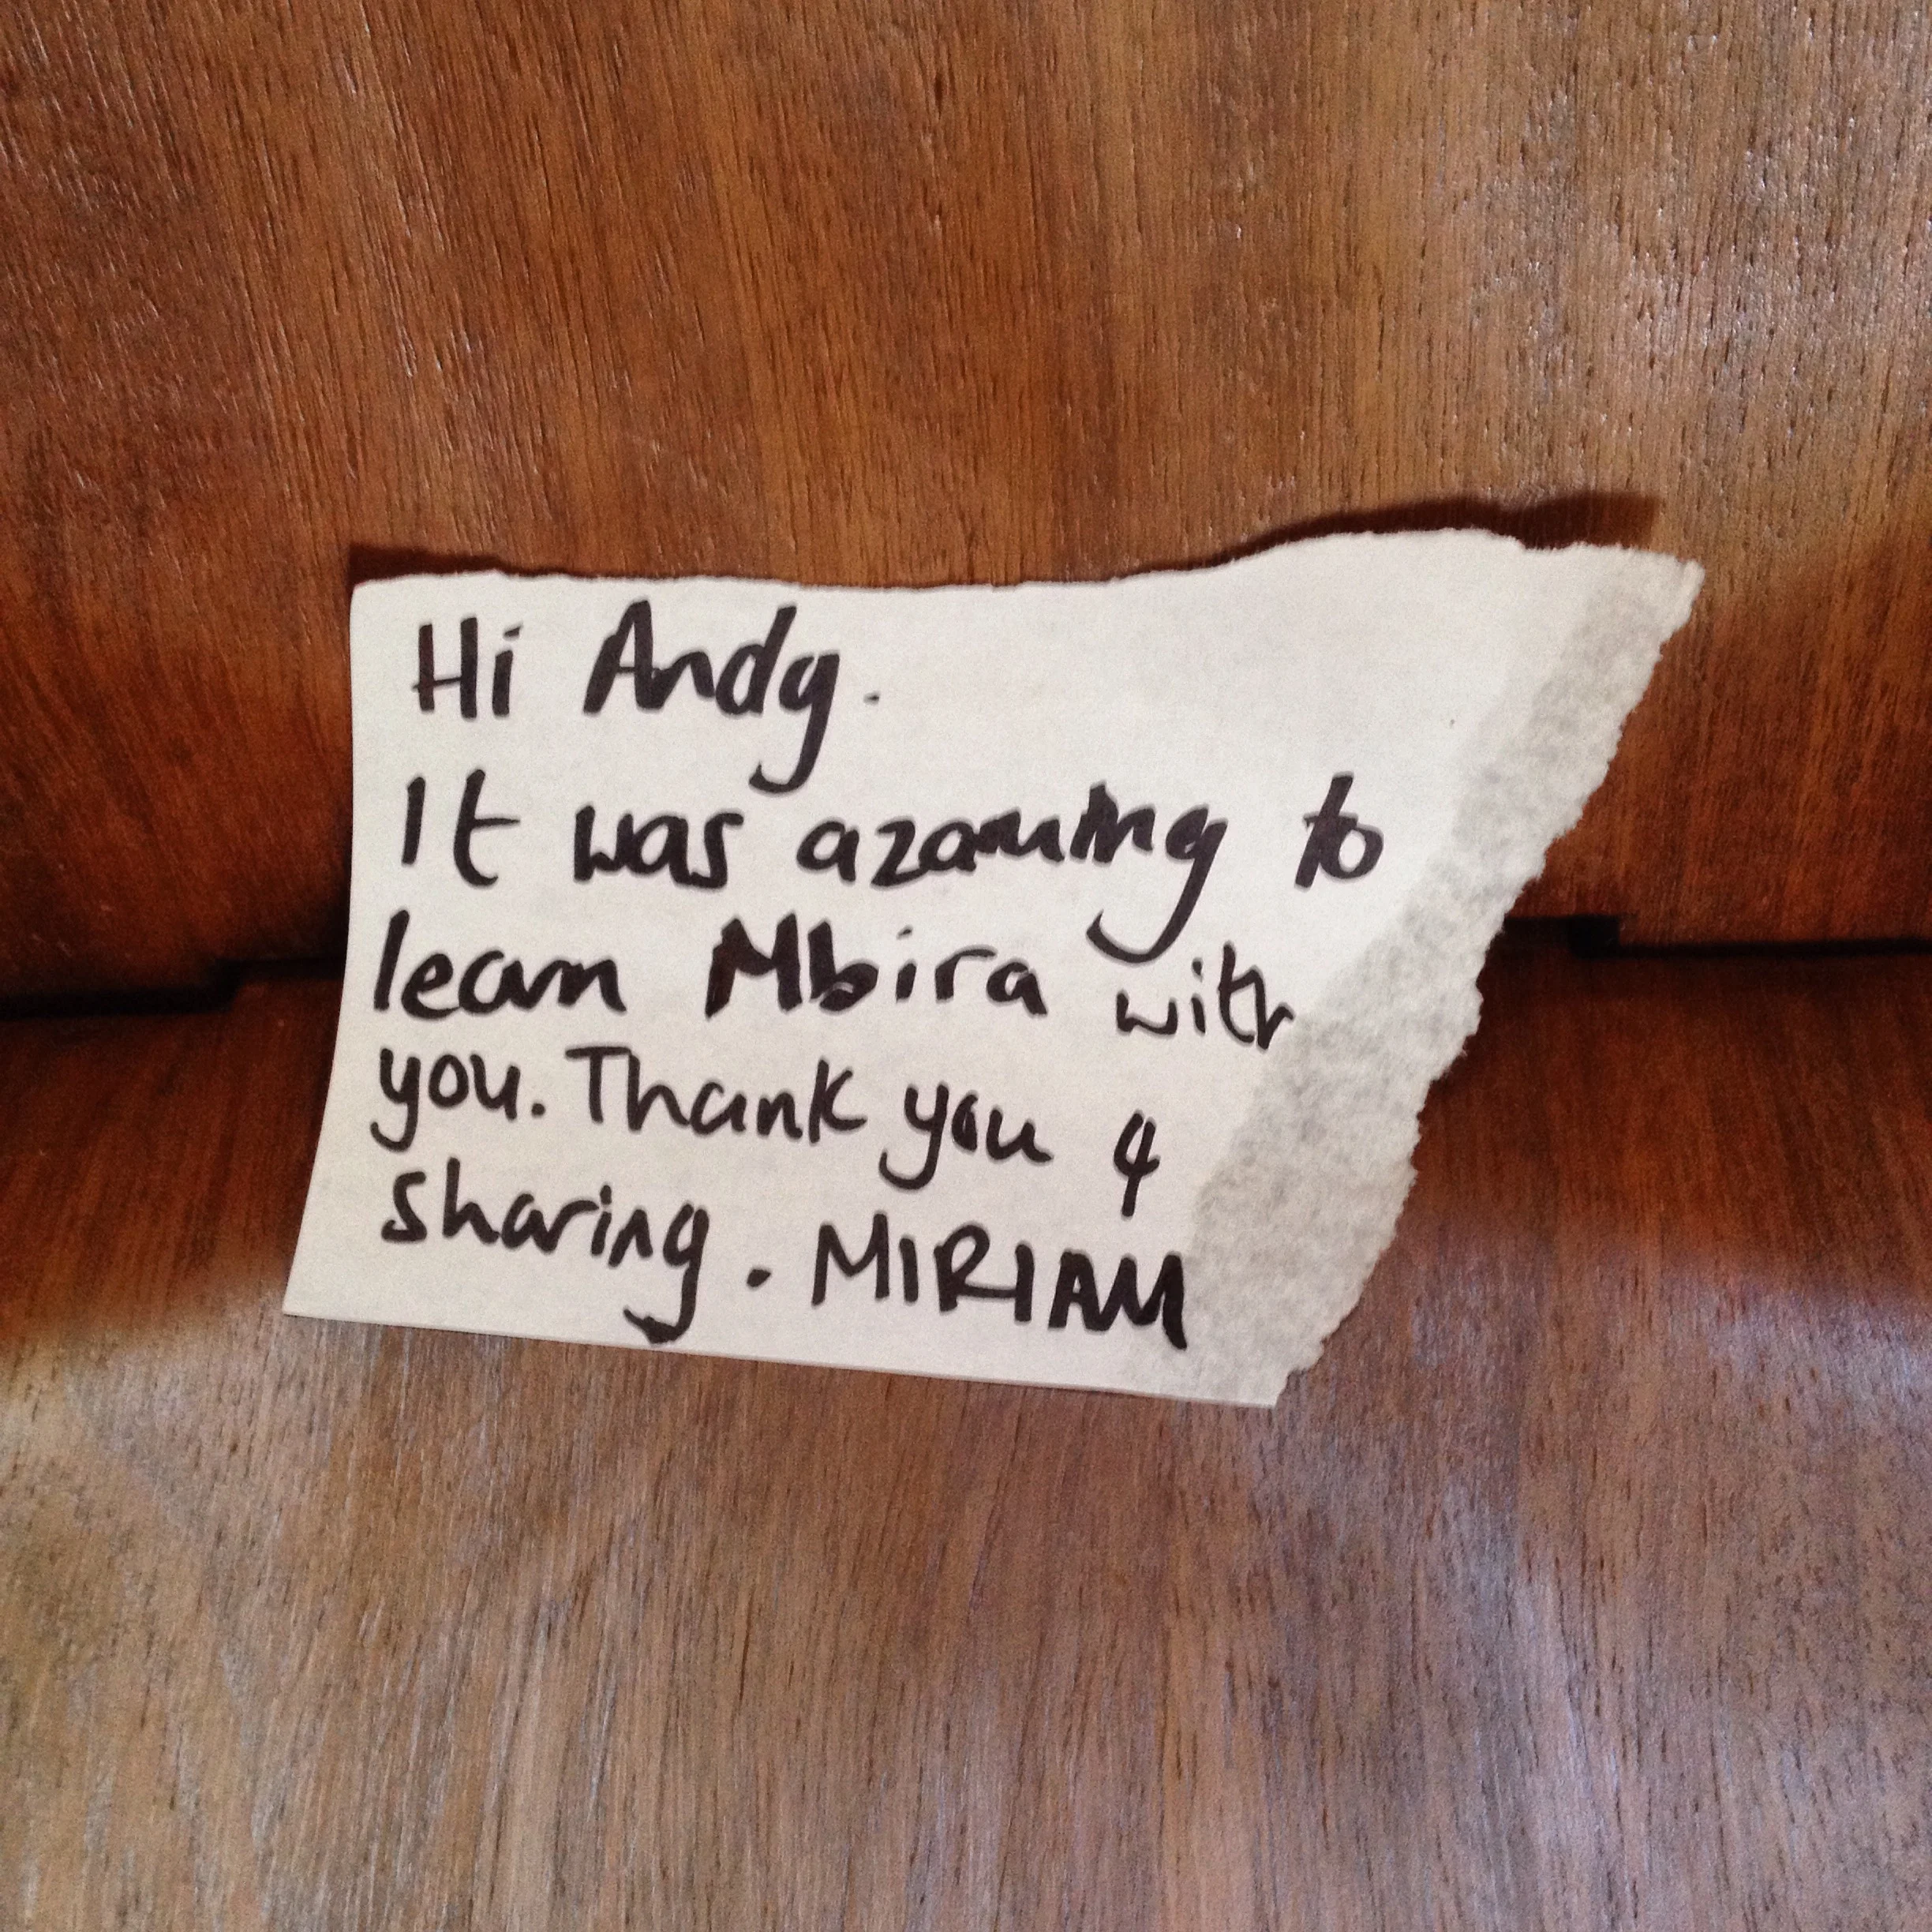 Hi Andy.
It was azaming to
learn Mbira with
you. Thank you &
sharing. MIRIAM